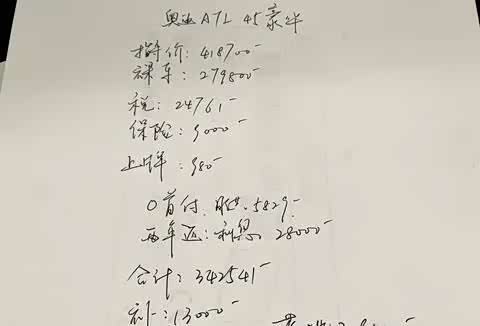 奥迪A7L 45豪华
指导价:418700-
裸车:279800-
税:24761-
保险:9000-
上牌:980-
0首付 月供:5829-
两年返:利息 28000-
合计:342541-
补:13000-